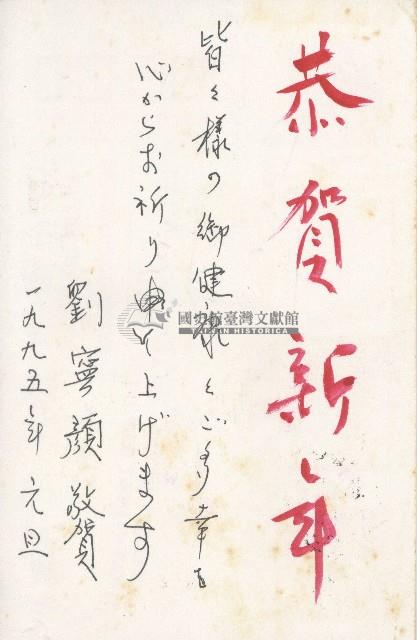 恭賀新年
皆々樣の御健康とご多幸を
心からお祈り申し上げます
劉寧顏敬賀
一九九五年元旦
國史館臺灣文獻館
TAIWAN HISTORICA